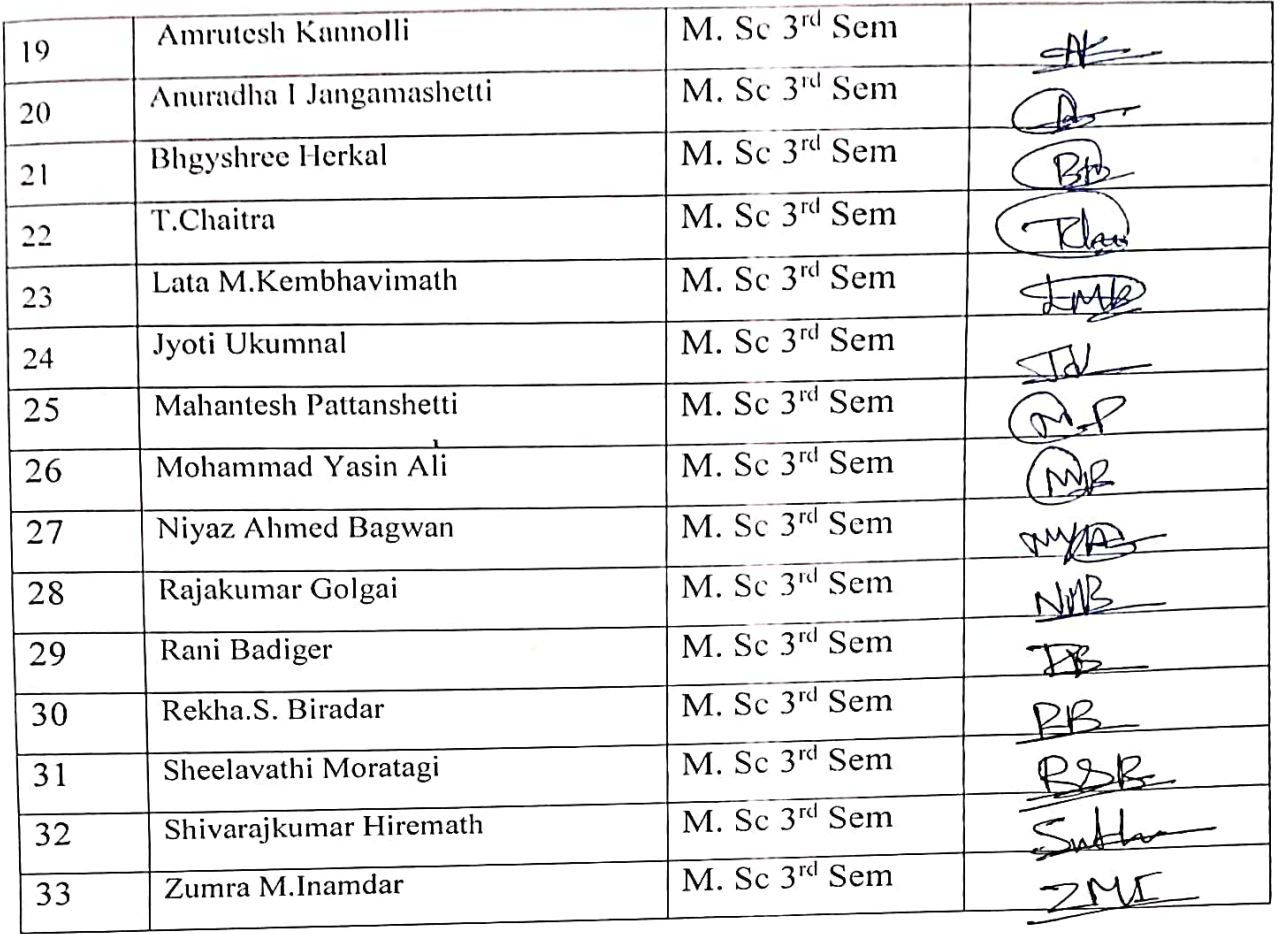 19 Amrutesh Kannolli M. Sc 3rd Sem AK
20 Anuradha I Jangamashetti M. Sc 3rd Sem
21 Bhgyshree Herkal M. Sc 3rd Sem
22 T.Chaitra M. Sc 3rd Sem
23 Lata M.Kembhavimath M. Sc 3rd Sem
24 Jyoti Ukumnal M. Sc 3rd Sem
25 Mahantesh Pattanshetti M. Sc 3rd Sem M.P
26 Mohammad Yasin Ali M. Sc 3rd Sem
27 Niyaz Ahmed Bagwan M. Sc 3rd Sem
28 Rajakumar Golgai M. Sc 3rd Sem
29 Rani Badiger M. Sc 3rd Sem
30 Rekha.S. Biradar M. Sc 3rd Sem RB
31 Sheelavathi Moratagi M. Sc 3rd Sem RSB
32 Shivarajkumar Hiremath M. Sc 3rd Sem
33 Zumra M.Inamdar M. Sc 3rd Sem ZMI